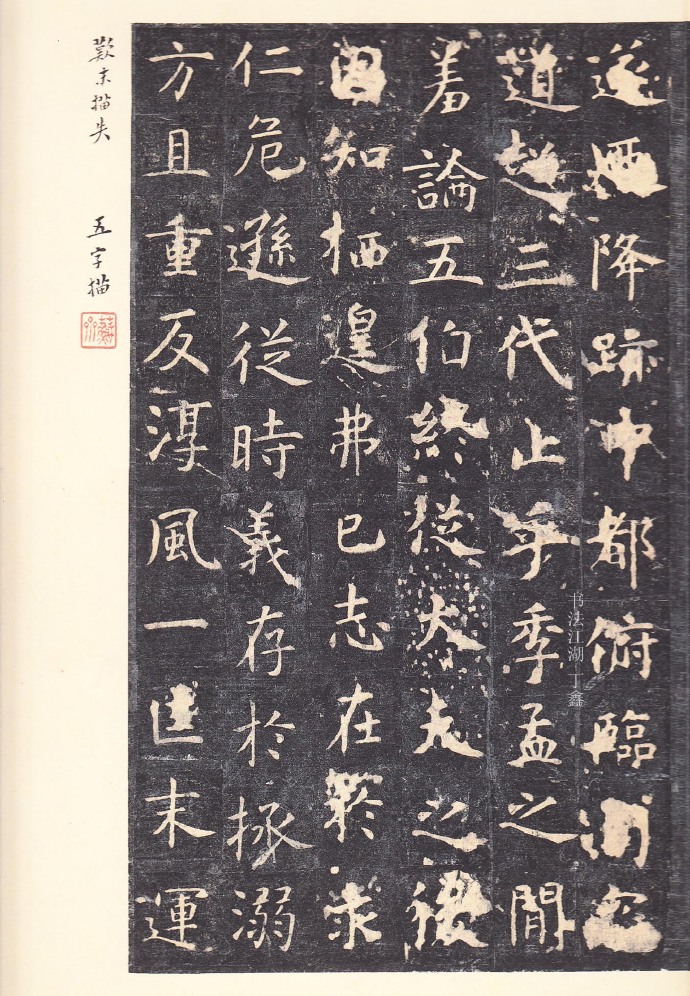 遂迺降跡中都俯臨司寇
道超三代止乎季孟之間
羞論五伯終從大夫之後
固知栖遑弗已志在於求
仁危遜從時義存於拯溺
方且重反淳風一匡末運
歎末描失 五字描
书法江湖 丁鑫